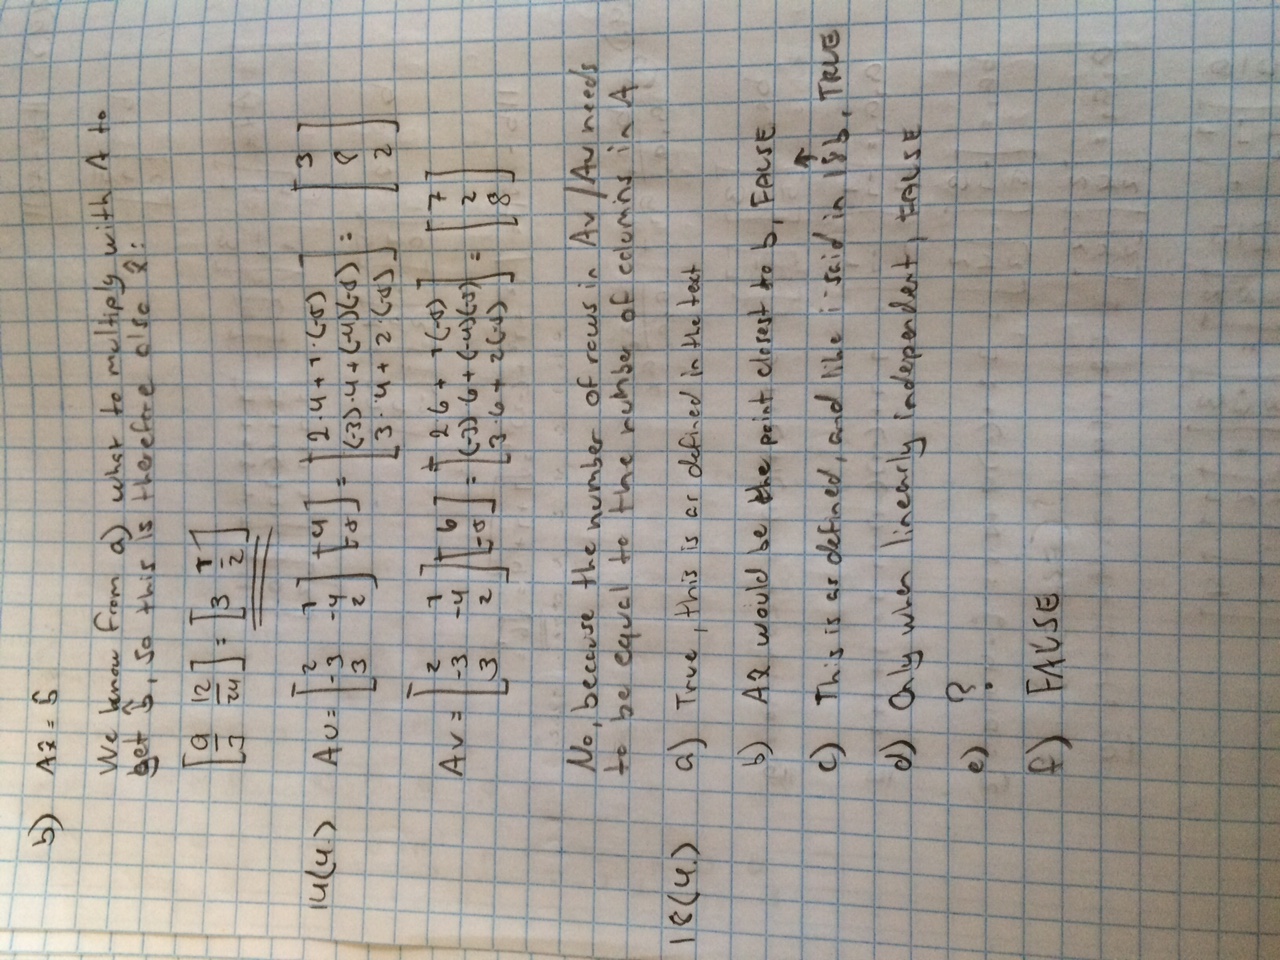 b) Ax̂ = b̂
We know from a) what to multiply with A to
get b̂, so this is therefore also x̂:
[9/3 12/24] = [3 1/2]
14(4.) Au = [2 1; -3 -4; 3 2] [4; -5] = [2·4+1·(-5); (-3)·4+(-4)(-5); 3·4+2·(-5)] = [3; 8; 2]
Av = [2 1; -3 -4; 3 2] [6; -5] = [2·6+1(-5); (-3)·6+(-4)(-5); 3·6+2(-5)] = [7; 2; 8]
No, because the number of rows in Av/Au needs
to be equal to the number of columns in A
18(4.) a) True, this is as defined in the text
b) Ax̂ would be the point closest to b, FALSE
c) This is as defined, and like i said in 18b, TRUE
d) Only when linearly independent, FALSE
e) ?
f) FALSE